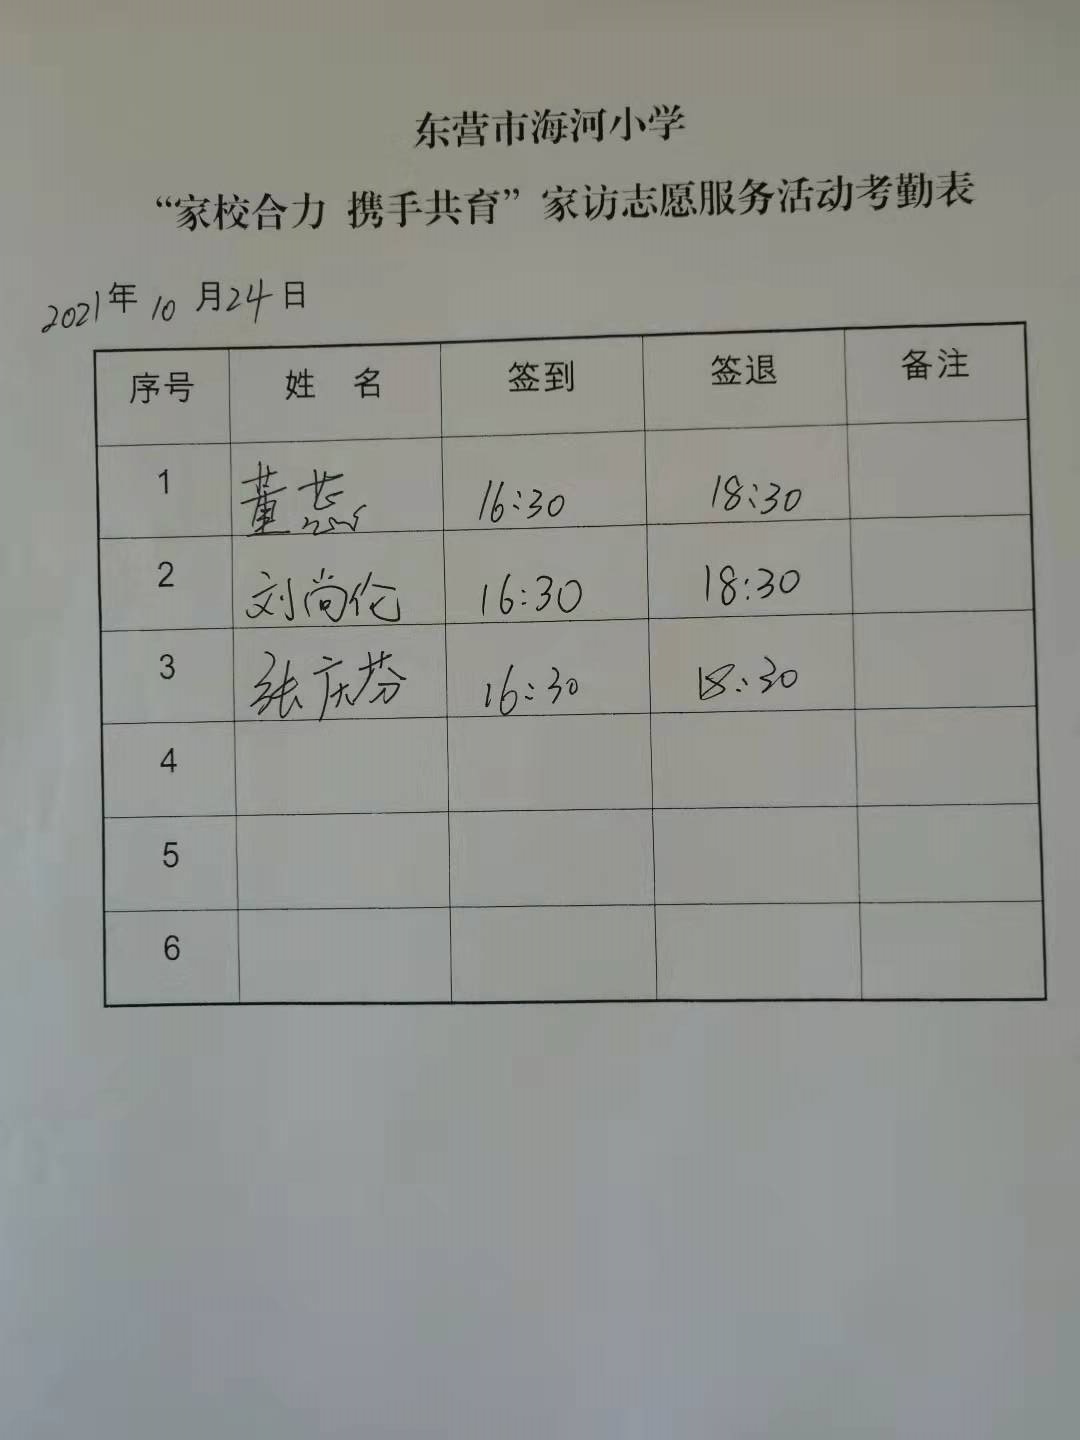 东营市海河小学
“家校合力 携手共育”家访志愿服务活动考勤表
2021年10月24日
序号 姓 名 签到 签退 备注
1 董蕊 16:30 18:30
2 刘尚伦 16:30 18:30
3 张庆芬 16:30 18:30
4
5
6